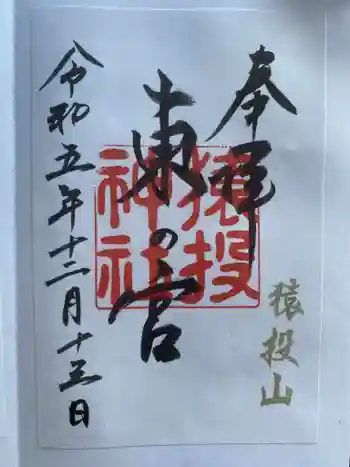 奉拝
猿投山
猿投神社
東の宮
令和五年十二月十三日